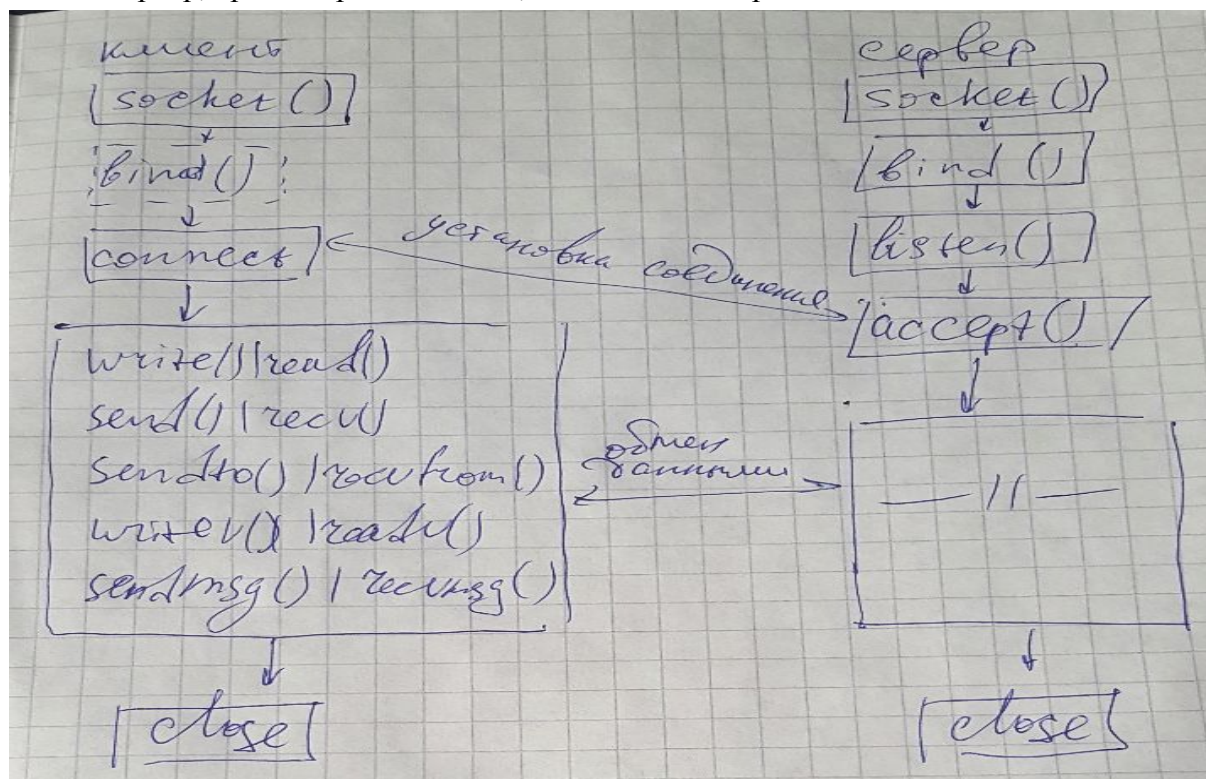 клиент
socket()
bind()
connect
write() | read()
send() | recv()
sendto() | recvfrom()
writev() | readv()
sendmsg() | recvmsg()
close
установка соединения
обмен
данными
сервер
socket()
bind()
listen()
accept()
— // —
close